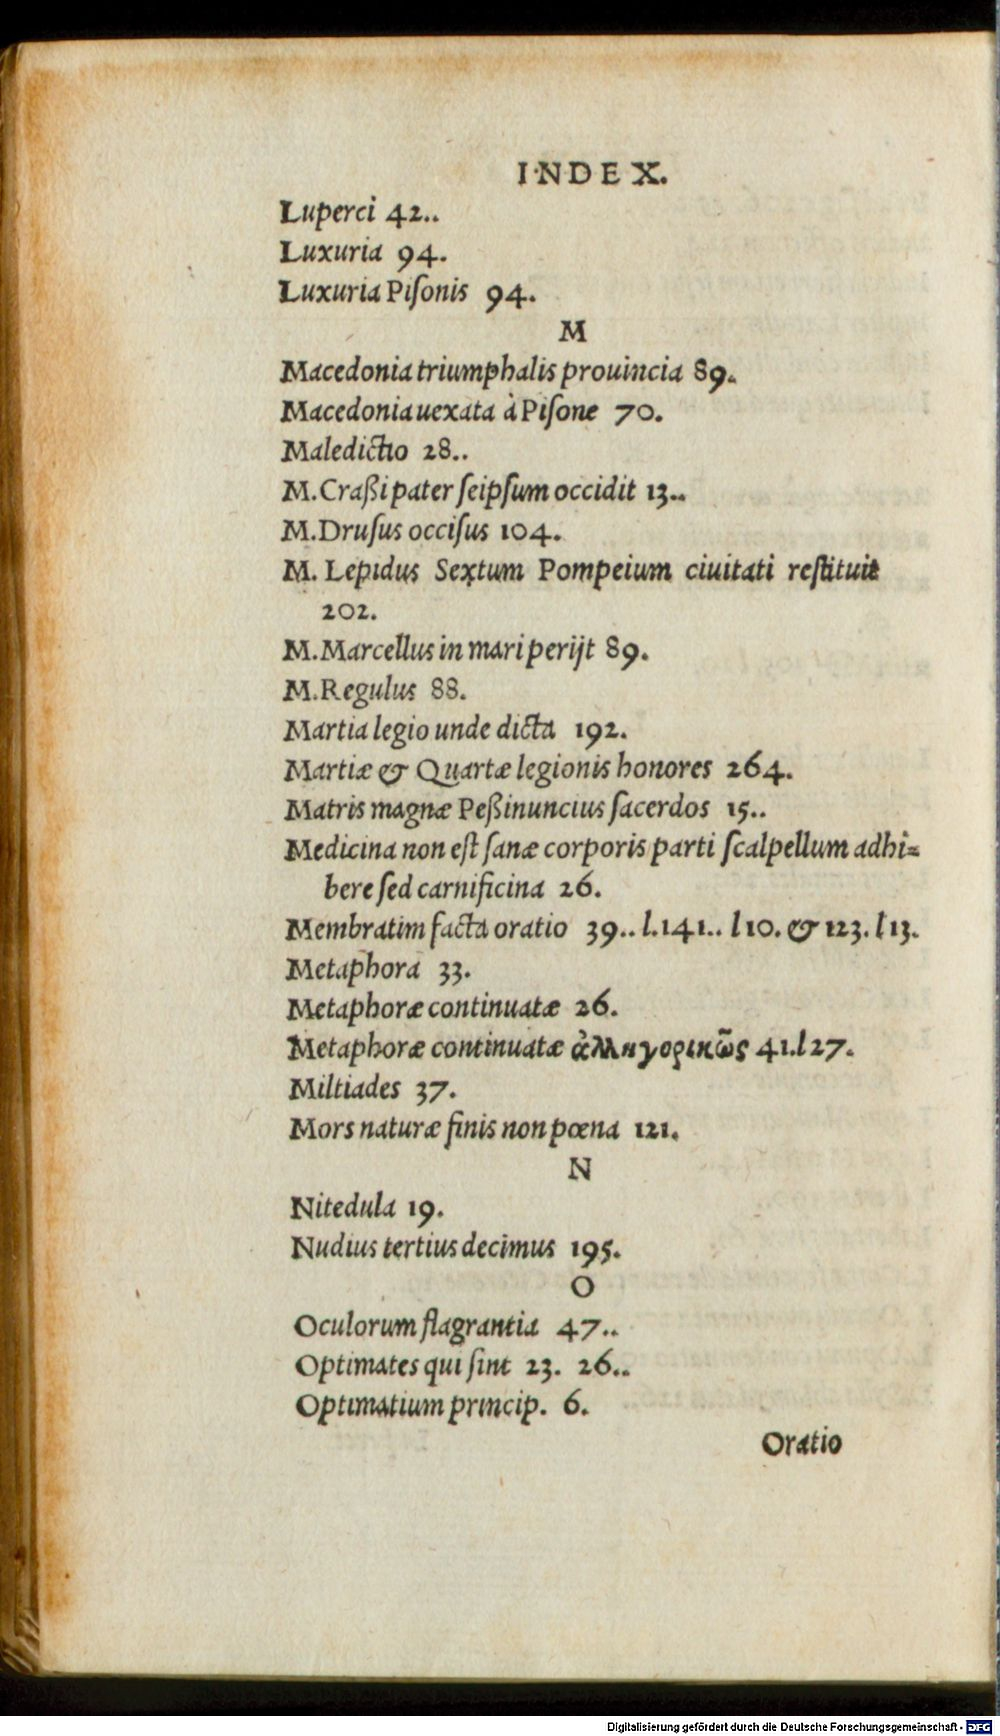 INDEX.
Luperci 42..
Luxuria 94.
Luxuria Piſonis 94.
M
Macedonia triumphalis prouincia 89.
Macedonia uexata à Piſone 70.
Maledictio 28..
M. Craßi pater ſeipſum occidit 13..
M. Druſus occiſus 104.
M. Lepidus Sextum Pompeium ciuitati reſtituit
202.
M. Marcellus in mari perijt 89.
M. Regulus 88.
Martia legio unde dicta 192.
Martiæ & Quartæ legionis honores 264.
Matris magnæ Peßinuncius ſacerdos 15..
Medicina non eſt ſanæ corporis parti ſcalpellum adhi=
bere ſed carnificina 26.
Membratim facta oratio 39.. l.141.. l 10. & 123. l 13.
Metaphora 33.
Metaphoræ continuatæ 26.
Metaphoræ continuatæ ἀλληγορικῶς 41. l 27.
Miltiades 37.
Mors naturæ finis non pœna 121.
N
Nitedula 19.
Nudius tertius decimus 195.
O
Oculorum flagrantia 47..
Optimates qui ſint 23. 26..
Optimatium princip. 6.
Oratio
Digitalisierung gefördert durch die Deutsche Forschungsgemeinschaft - DFG